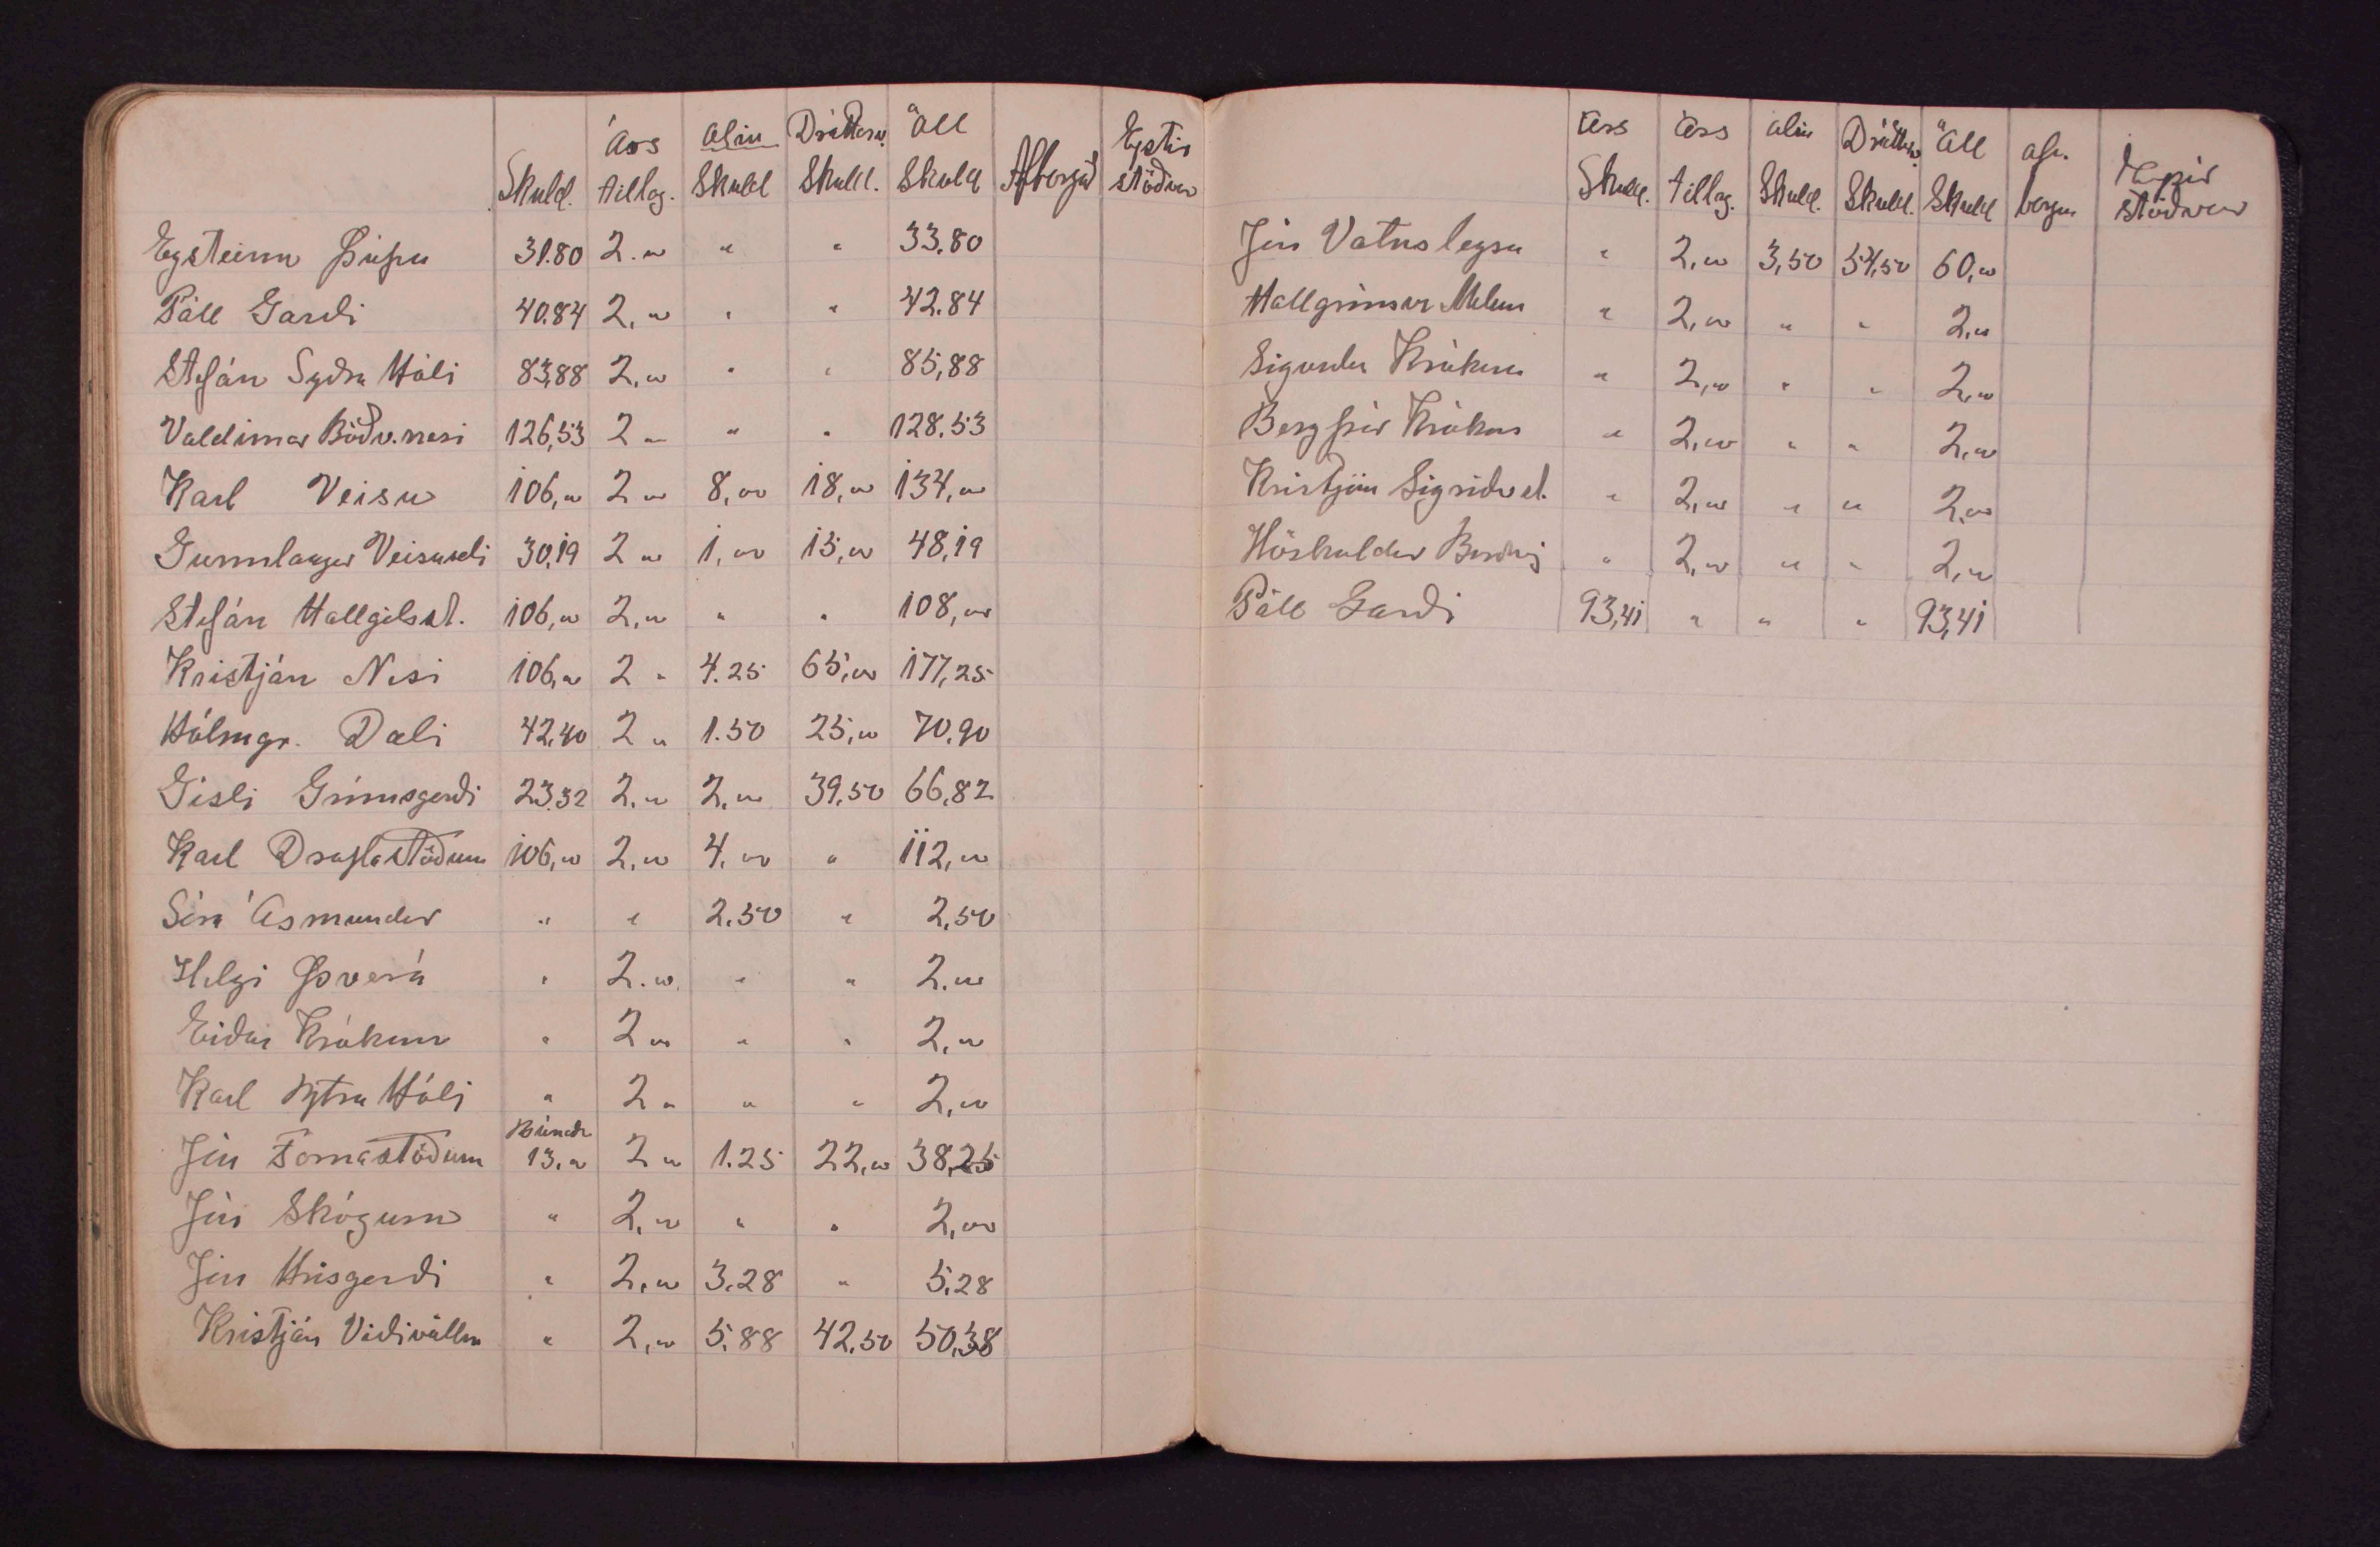 Skuld. Árs tillag. Alin Skuld Dráttarv. Skuld. Öll Skuld Afborgað Eptir stöðvar
Eysteinn Þúfu 31.80 2.00 " " 33.80
Páll Garði 40.84 2,00 " " 42.84
Stefán Syðra Hóli 83,88 2,00 " " 85,88
Valdimar Böðv.nesi 126,53 2 00 " " 128.53
Karl Veisu 106,00 2 00 8,00 18,00 134,00
Gunnlaugur Veisuseli 30,19 2 00 1,00 15,00 48,19
Stefán Hallgilsst. 106,00 2,00 " " 108,00
Kristján Nesi 106,00 2 " 4.25 65,00 177,25
Hólmgr. Dali 42,40 2 00 1.50 25,00 70,90
Gísli Grímsgerði 23.32 2,00 2,00 39,50 66,82
Karl Draflastöðum 106,00 2,00 4,00 " 112,00
Séra Ásmundur " " 2.50 " 2,50
Helgi Þverá " 2.00 " " 2.00
Eiður Krókum " 2 00 " " 2,00
Karl Ytra Hóli " 2 " " " 2,00
Jón Fornastöðum 13,00 2 00 1.25 22,00 38,25
Jón Skógum " 2,00 " " 2,00
Jón Hrísgerði " 2,00 3.28 " 5,28
Kristján Víðivöllum " 2,00 5,88 42,50 50,38
Árs Skuld. Árs tillag. Alin Skuld. Dráttarv. Skuld. Öll Skuld Af borgun stöðvar
Jón Vatnsleysu " 2,00 3,50 54,50 60,00
Hallgrímur Melum " 2,00 " " 2,00
Sigurður Krókum " 2,00 " " 2,00
Bergþór Krókum " 2,00 " " 2,00
Kristján Sigríðarst. " 2,00 " " 2,00
Höskuldur " 2,00 " " 2,00
Páll Garði 93,41 " " " 93,41